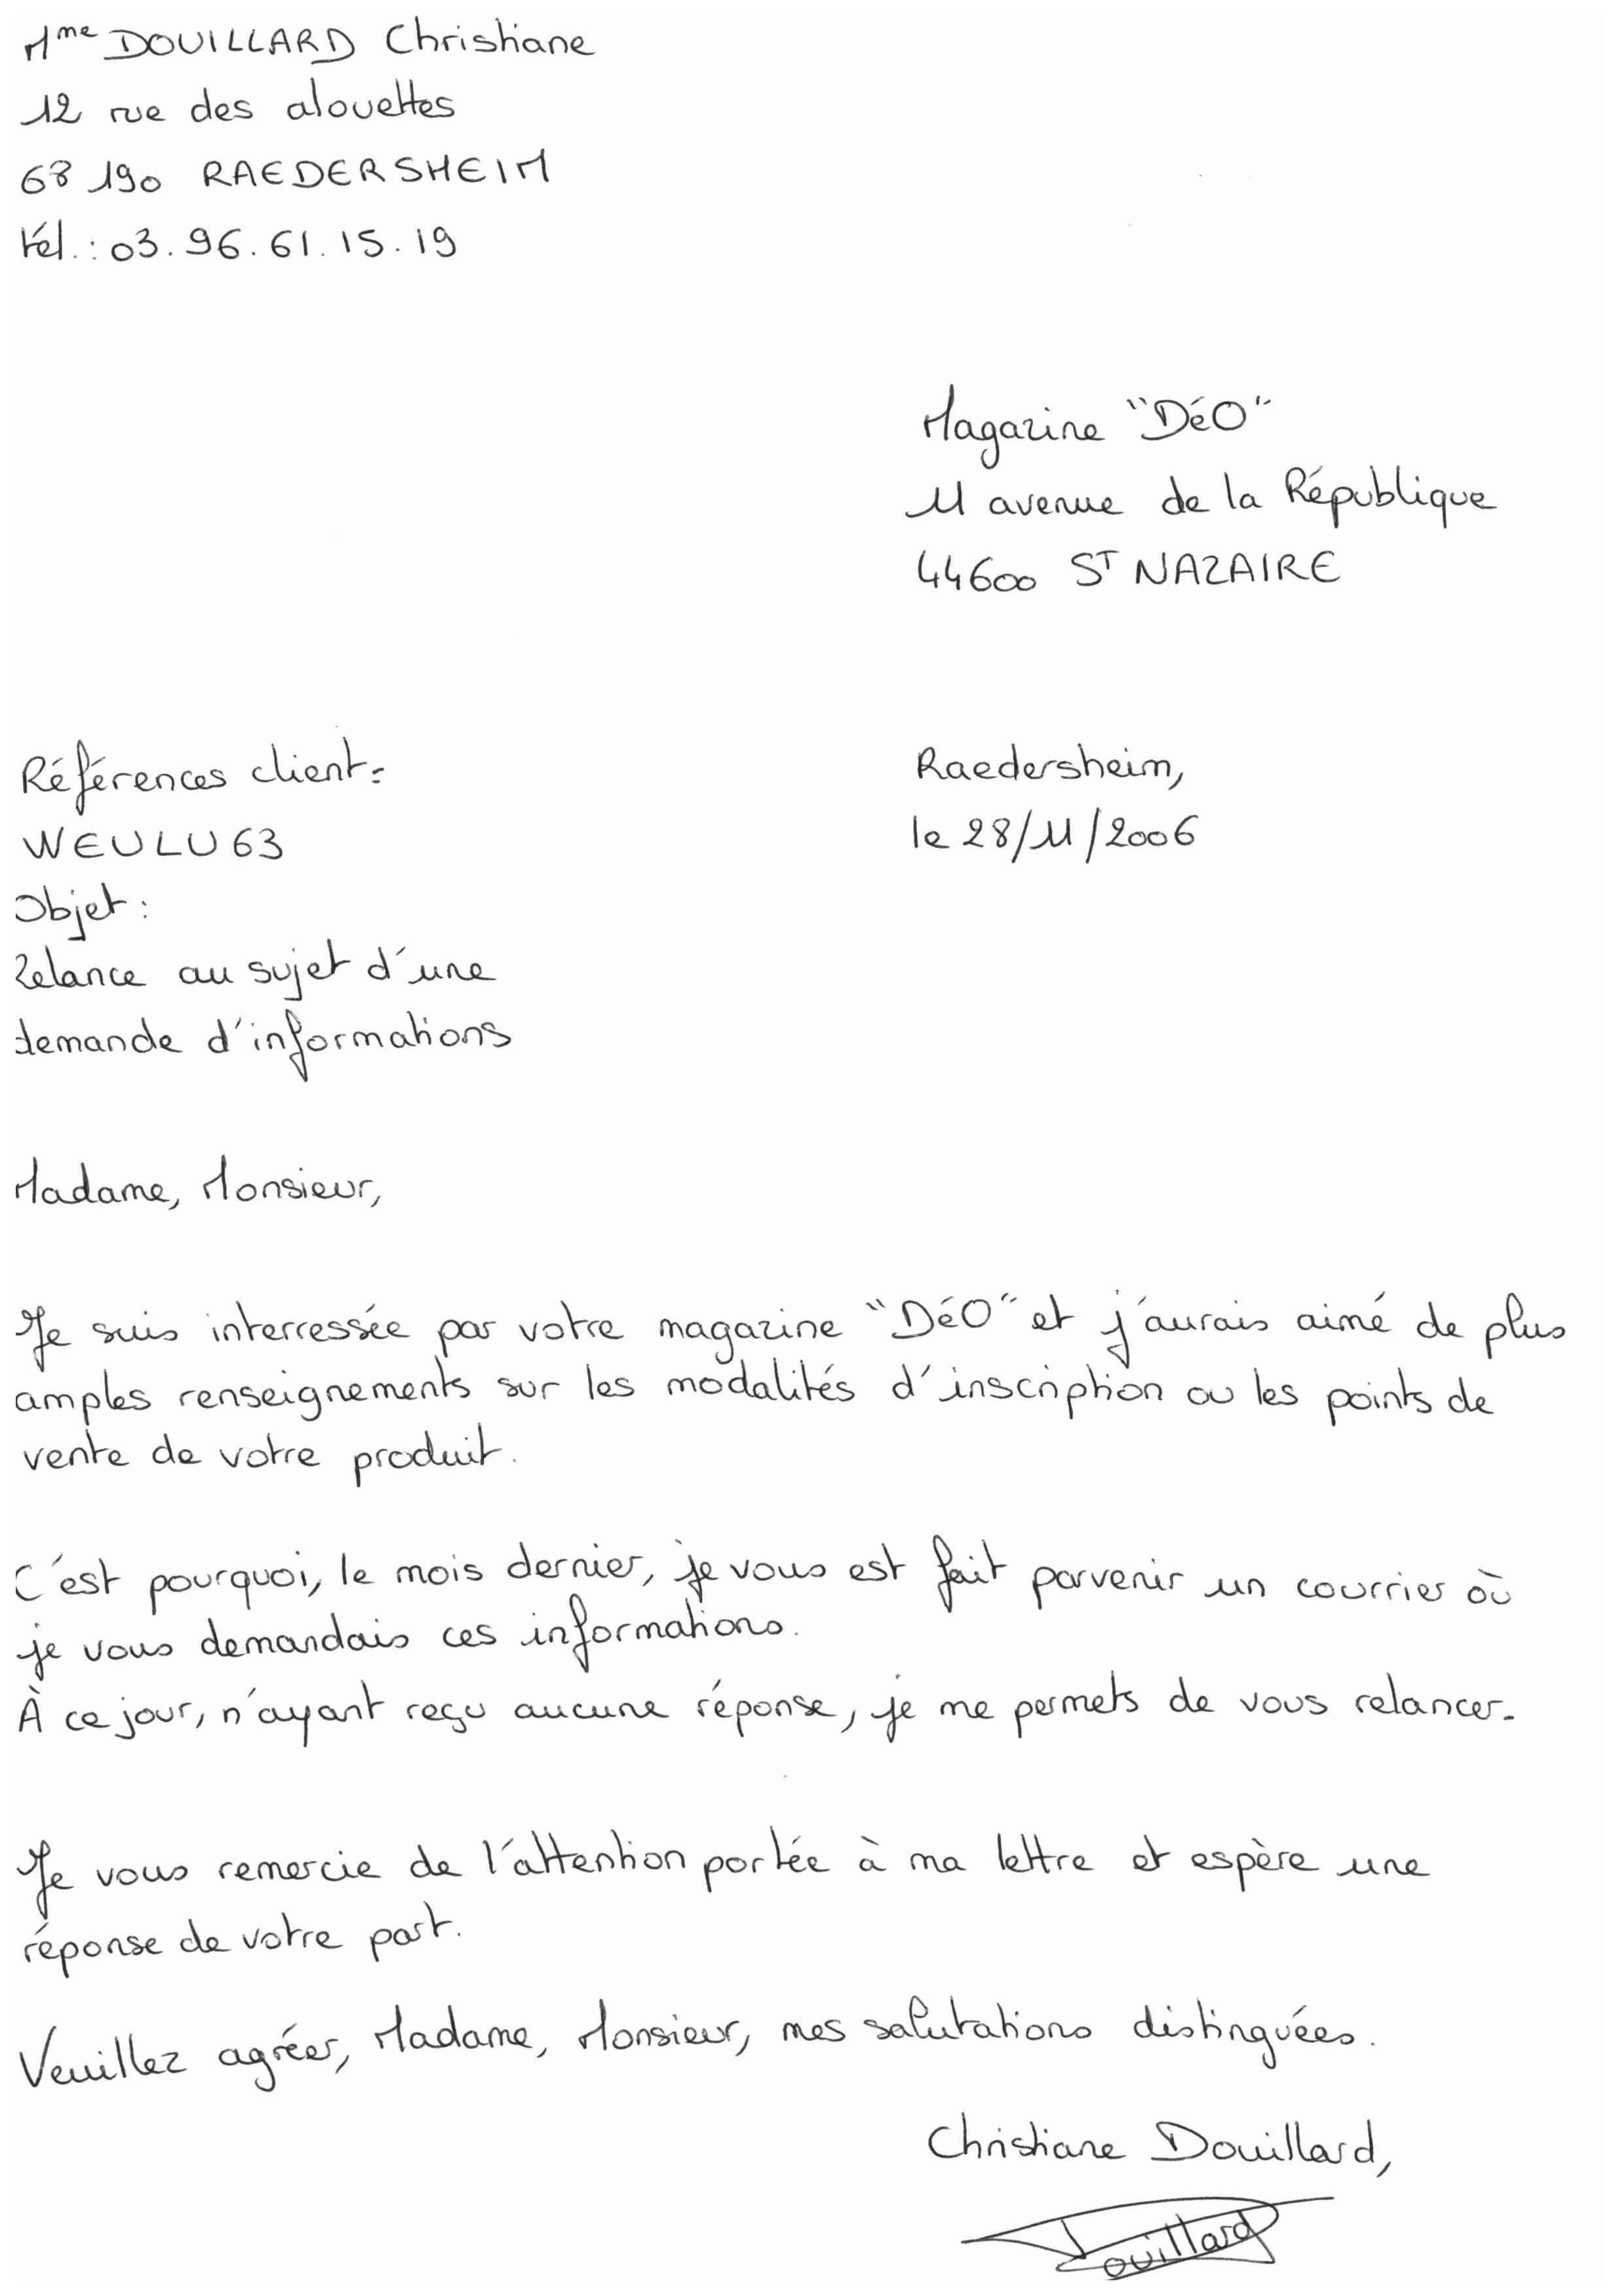 Mme DOUILLARD Christiane
12 rue des alouettes
68190 RAEDERSHEIM
tél.: 03.96.61.15.19
Magazine "DéO"
11 avenue de la République
44600 ST NAZAIRE
Références client:
WEULU63
Raedersheim,
le 28/11/2006
Objet:
Relance au sujet d'une
demande d'informations
Madame, Monsieur,
Je suis interressée par votre magazine "DéO" et j'aurais aimé de plus
amples renseignements sur les modalités d'inscription ou les points de
vente de votre produit.
C'est pourquoi, le mois dernier, je vous est fait parvenir un courrier où
je vous demandais ces informations.
À ce jour, n'ayant reçu aucune réponse, je me permets de vous relancer.
Je vous remercie de l'attention portée à ma lettre et espère une
réponse de votre part.
Veuillez agréer, Madame, Monsieur, mes salutations distinguées.
Christiane Douillard,
Douillard